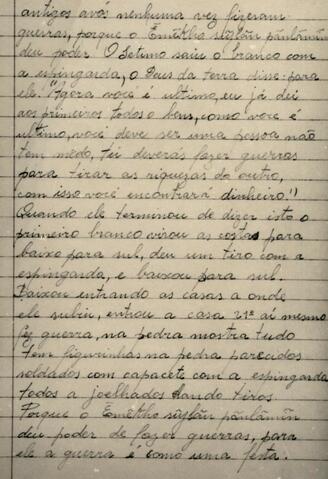 antigos avós nenhuma vez fizeram
guerras, porque o Emëkho sulãn pãlãmin
deu poder. O Setimo saiu o branco com
a espingarda, o Deus da terra disse para
ele: "Agora você é ultimo, eu já dei
aos primeiros todos o bens, como você é
ultimo, você deve ser uma pessoa não
tem medo, tu deverás fazer guerras
para tirar as riquezas do outro,
com isso você encontrará dinheiro".)
Quando ele terminou de dizer isto o
primeiro branco virou as costas para
baixo para sul, deu um tiro com a
espingarda, e baixou para sul.
Baixou entrando as casas a onde
ele subiu, entrou a casa 21ª aí mesmo
fez guerra, na pedra mostra tudo
tem figurinhas na pedra parecidos
soldados com capacete com a espingarda
todos a joelhados dando tiros.
Porque o Emëkho sulãn pãlãmin
deu poder de fazer guerras, para
ele a guerra é como uma festa.